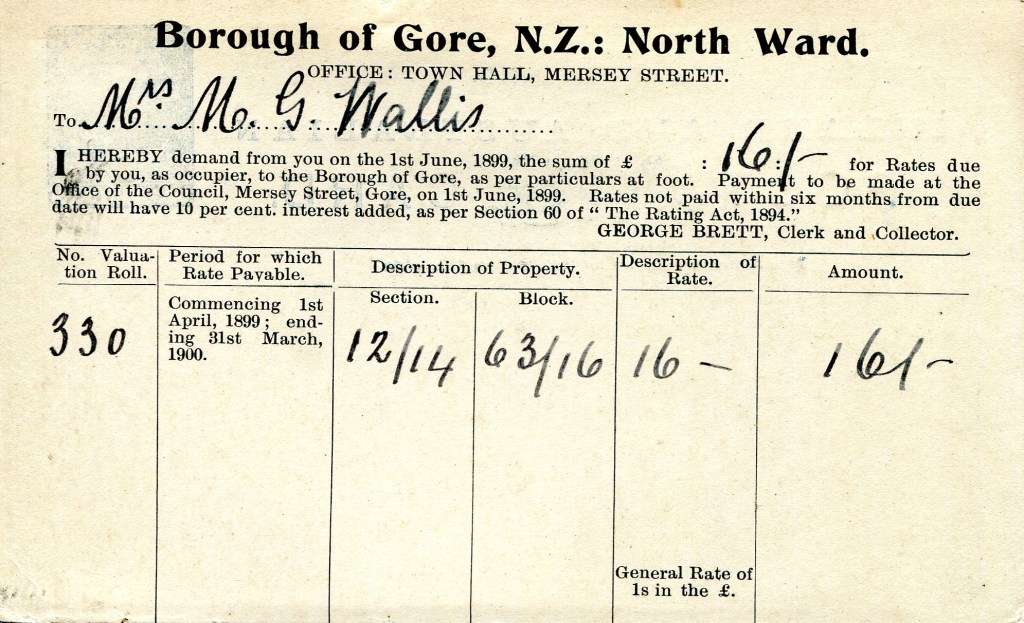 Borough of Gore, N.Z.: North Ward.
OFFICE: TOWN HALL, MERSEY STREET.
To Mrs. M. G. Wallis
I HEREBY demand from you on the 1st June, 1899, the sum of £ : 16/- : for Rates due
by you, as occupier, to the Borough of Gore, as per particulars at foot. Payment to be made at the
Office of the Council, Mersey Street, Gore, on 1st June, 1899. Rates not paid within six months from due
date will have 10 per cent. interest added, as per Section 60 of “ The Rating Act, 1894.”
GEORGE BRETT, Clerk and Collector.
No. Valua-
tion Roll.
Period for which
Rate Payable.
Description of Property.
Description of
Rate.
Amount.
Section.
Block.
330
Commencing 1st
April, 1899; end-
ing 31st March,
1900.
12/14
63/16
16 –
16/-
General Rate of
1s in the £.